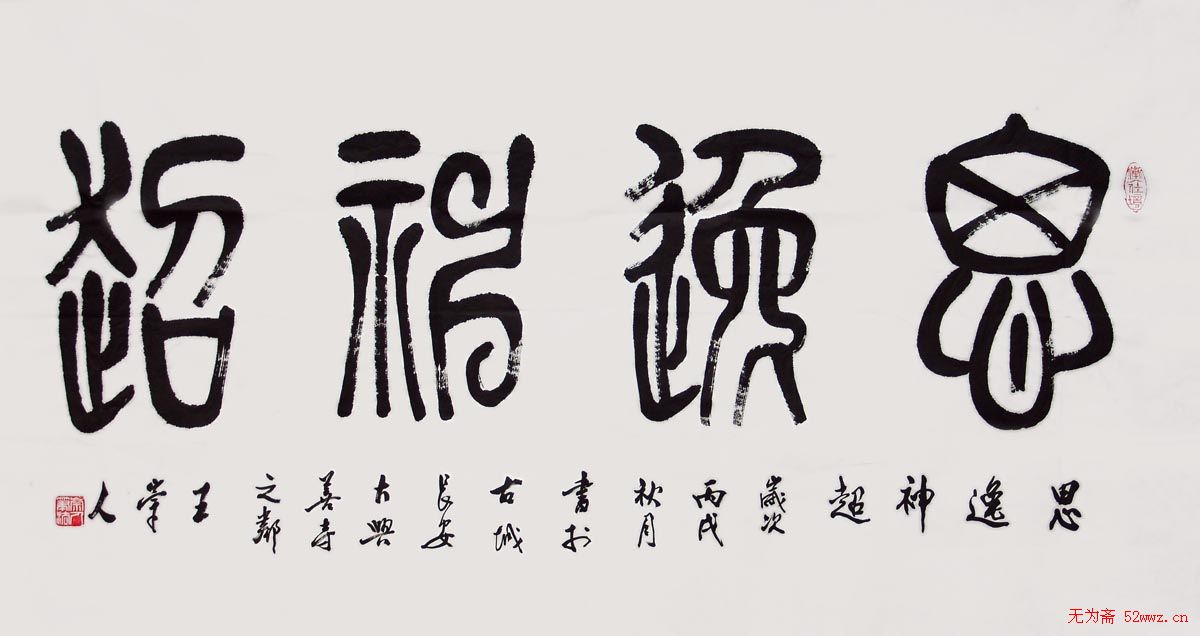 思逸神超
思逸神超 歲次丙戌秋月書於古城長安大興善寺之鄰 王崇人
无为斋 52wwz.cn